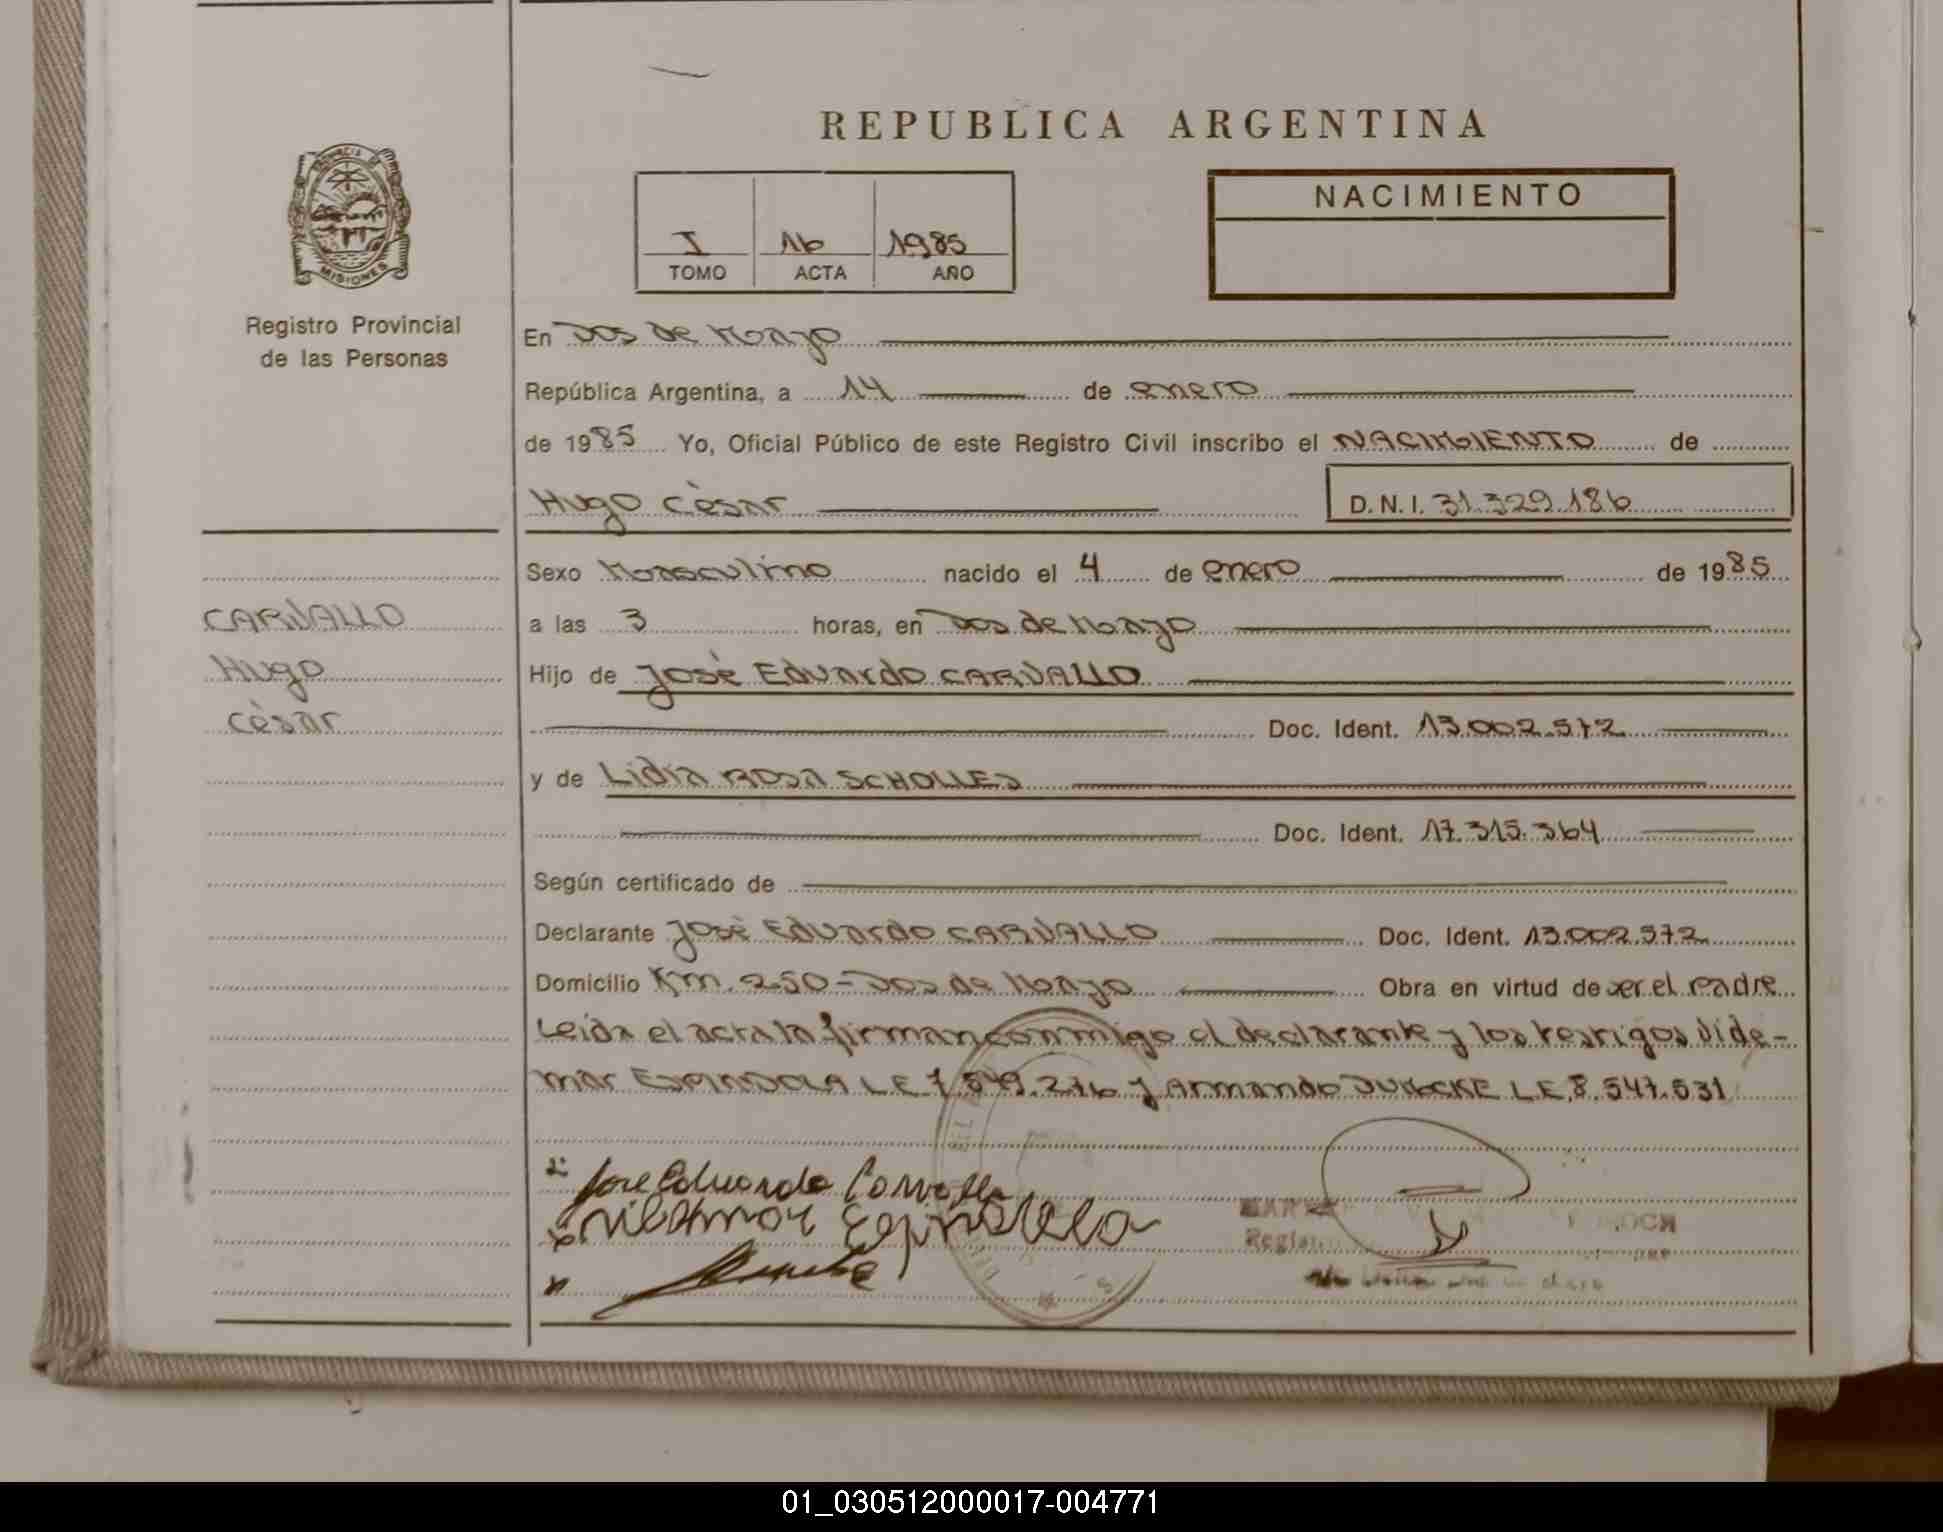 REPUBLICA ARGENTINA
PROVINCIA DE
MISIONES
Registro Provincial
de las Personas
I 16 1985
TOMO ACTA AÑO
NACIMIENTO
En Dos de Mayo
República Argentina, a 14 de enero
de 1985 Yo, Oficial Público de este Registro Civil inscribo el NACIMIENTO de
Hugo Cèsar D.N.I. 31.329.186
CARVALLO
Hugo
Cèsar
Sexo Masculino nacido el 4 de enero de 1985
a las 3 horas, en Dos de Mayo
Hijo de Josè Eduardo CARVALLO
Doc. Ident. 13.002.572
y de Lidia ROSA SCHOLLES
Doc. Ident. 17.315.364
Según certificado de
Declarante Josè Eduardo CARVALLO Doc. Ident. 13.002.572
Domicilio Km. 250 - Dos de Mayo Obra en virtud de ser el padre
Leida el acta la firman conmigo el declarante y los testigos Vide-
mar ESPINDOLA L E 7.549.276 y Armando L.E. 8.547.531
Jose Eduardo Carvallo
Espindola
01_030512000017-004771